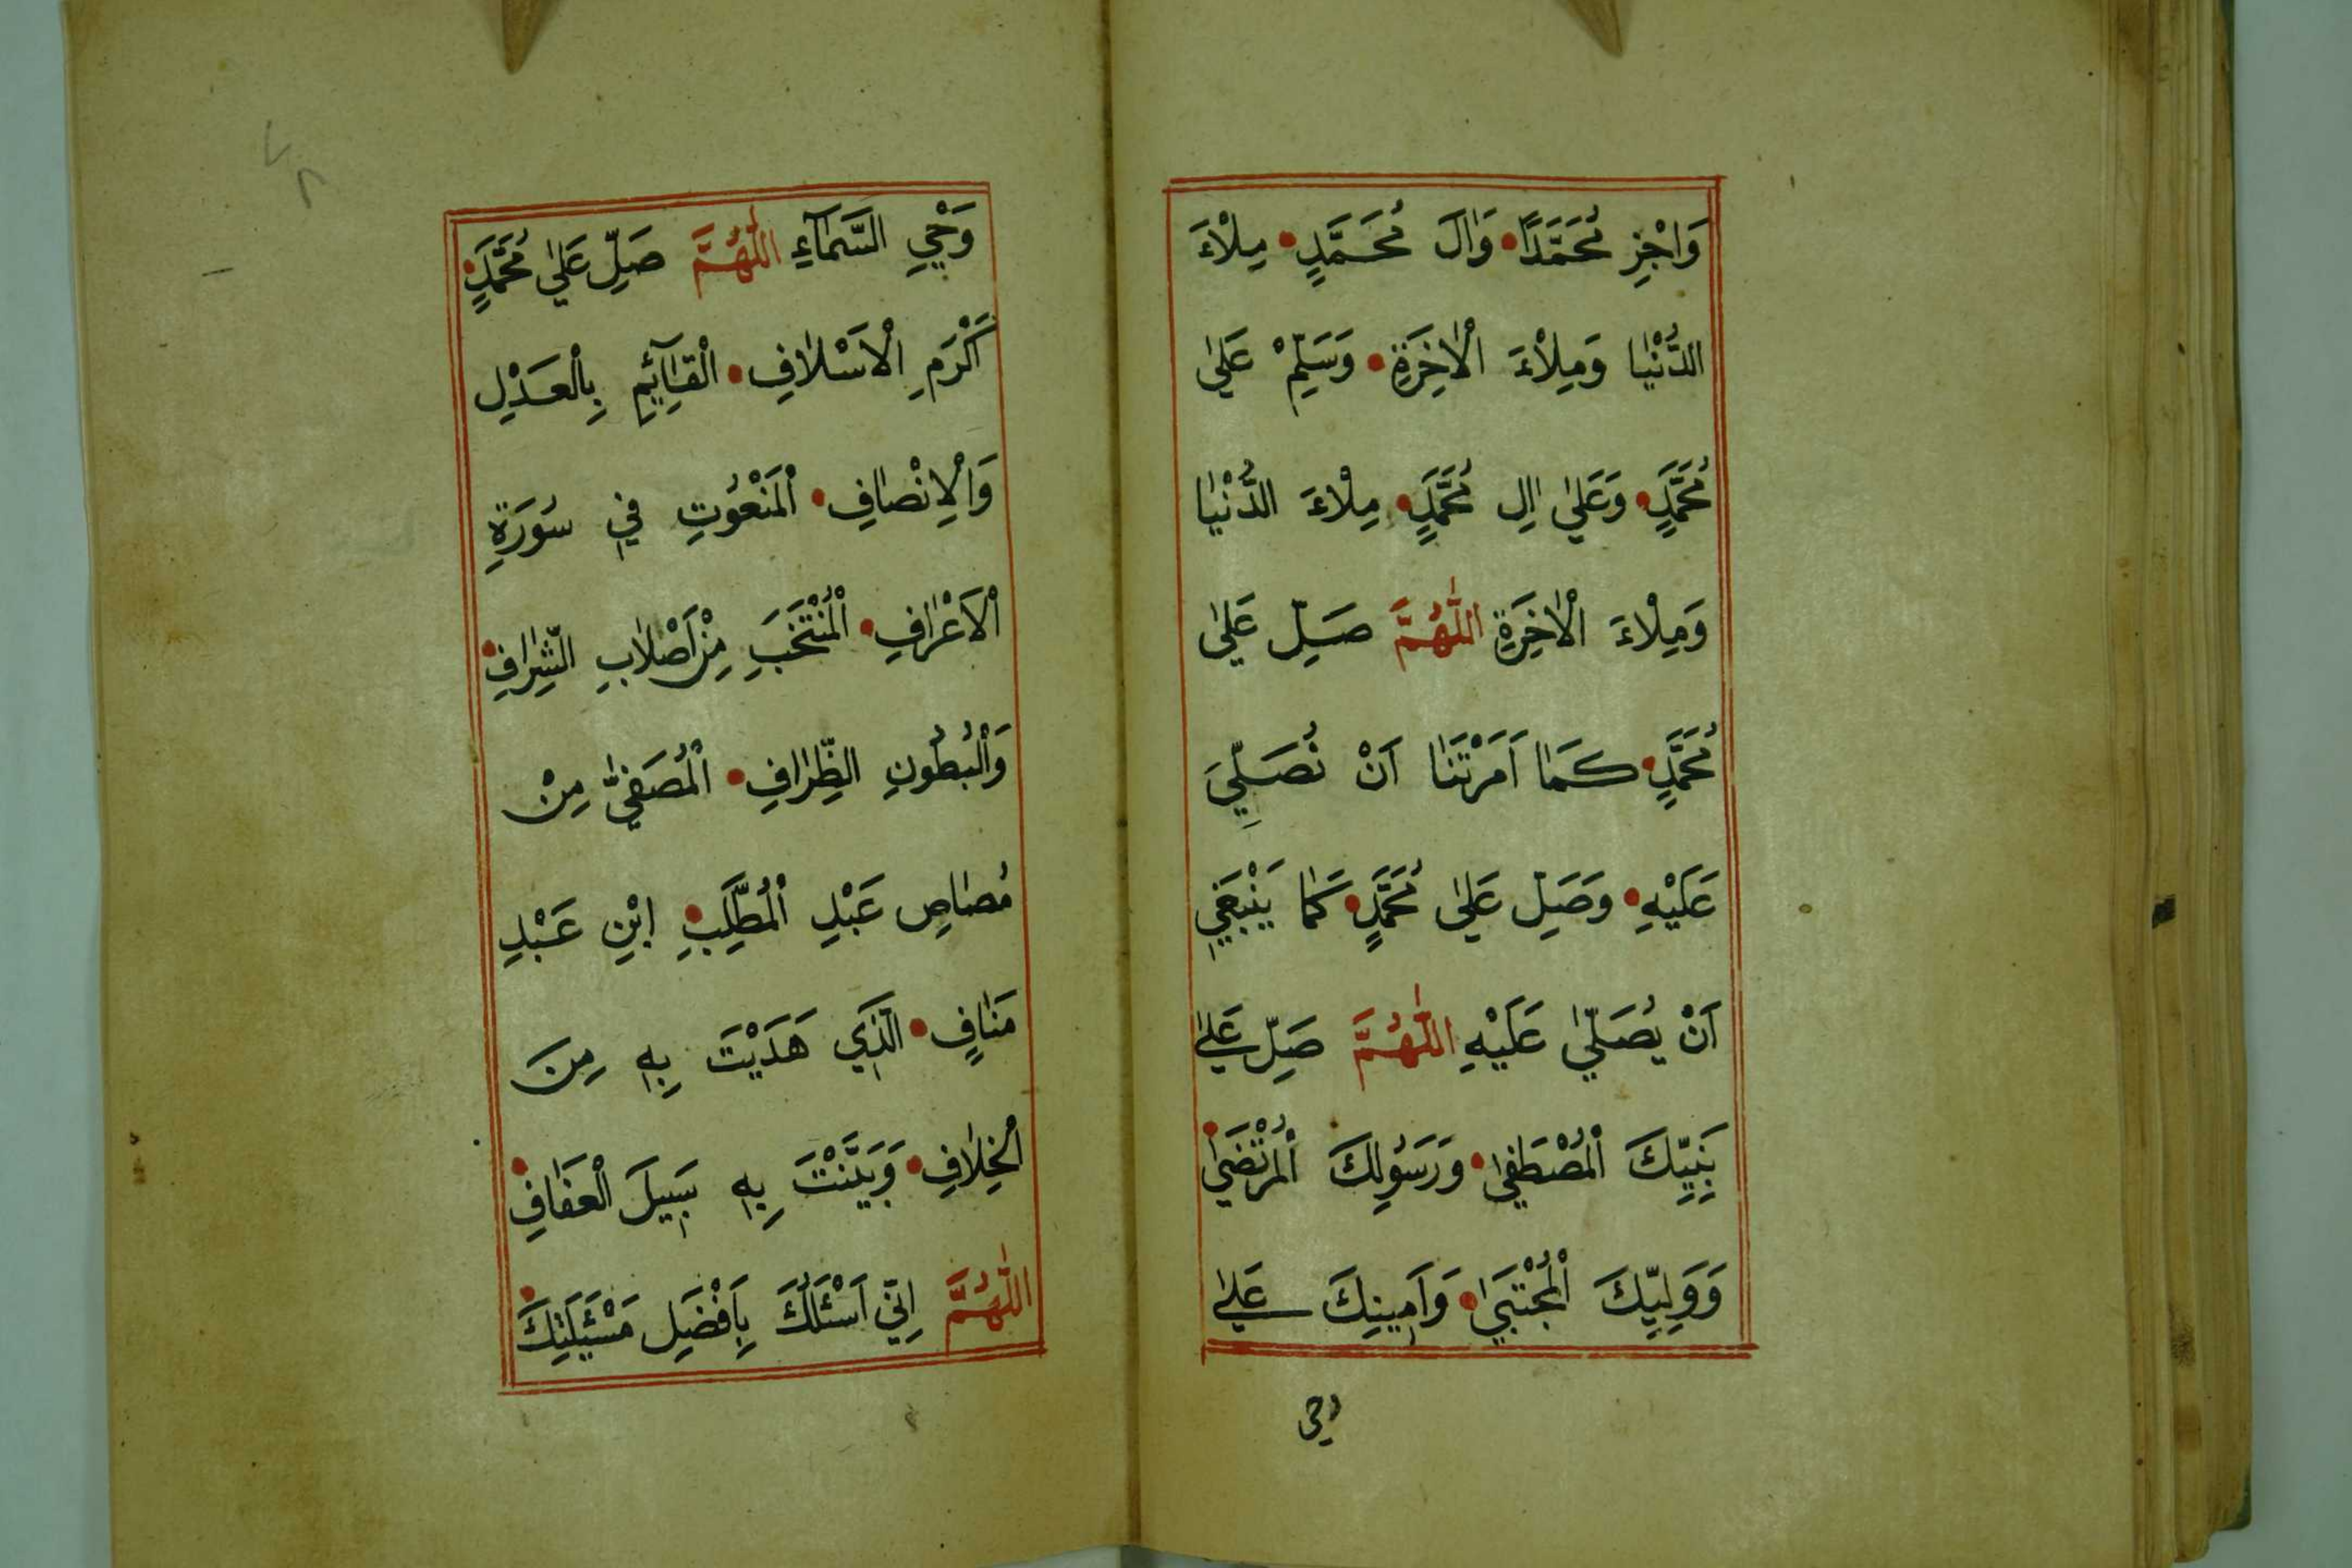 وَاجْزِ مُحَمَّدًا وَاٰلَ مُحَمَّدٍ مِلْاءَ
الدُّنْيَا وَمِلْاءَ الْاٰخِرَةِ وَسَلِّمْ عَلٰي
مُحَمَّدٍ وَعَلٰي اٰلِ مُحَمَّدٍ مِلْاءَ الدُّنْيَا
وَمِلْاءَ الْاٰخِرَةِ اللّٰهُمَّ صَلِّ عَلٰي
مُحَمَّدٍ كَمَا اَمَرْتَنَا اَنْ نُصَلِّيَ
عَلَيْهِ وَصَلِّ عَلٰي مُحَمَّدٍ كَمَا يَنْبَغِي
اَنْ يُصَلّٰي عَلَيْهِ اللّٰهُمَّ صَلِّ عَلٰي
نَبِيِّكَ الْمُصْطَفٰي وَرَسُوْلِكَ الْمُرْتَضٰي
وَوَلِيِّكَ الْمُجْتَبٰي وَاَمِينِكَ عَلٰي
وحي
وَحْيِ السَّمَاۤءِ اللّٰهُمَّ صَلِّ عَلٰي مُحَمَّدٍ
اَكْرَمِ الْاَسْلَافِ الْقَاۤئِمِ بِالْعَدْلِ
وَالْاِنْصَافِ الْمَنْعُوْتِ فِي سُوْرَةِ
الْاَعْرَافِ الْمُنْتَخَبِ مِنْ اَصْلَابِ الشِّرَافِ
وَالْبُطُونِ الظِّرَافِ الْمُصَفّٰي مِنْ
مُصَاصِ عَبْدِ الْمُطَّلِبِ ابْنِ عَبْدِ
مَنَافٍ الَّذِي هَدَيْتَ بِهٖ مِنَ
الْخِلَافِ وَبَيَّنْتَ بِهٖ سَبِيلَ الْعَفَافِ
اللّٰهُمَّ اِنِّي اَسْئَلُكَ بِاَفْضَلِ مَسْئَلَتِكَ